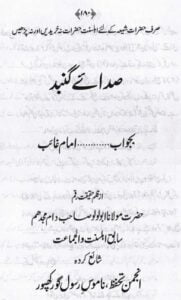 (۱۸۰)
صرف حضرات شیعہ کے لئے اہلسنت حضرات نہ خریدیں اور نہ پڑھیں
صدائے گنبد
بجواب ............ امام غائب
از قلم حقیقت رقم
حضرت مولانا ابولولو صاحب دام مجدھم
سابق اہلسنت والجماعت
شائع کردہ
انجمن تحفظ ناموس رسول گورکھپور